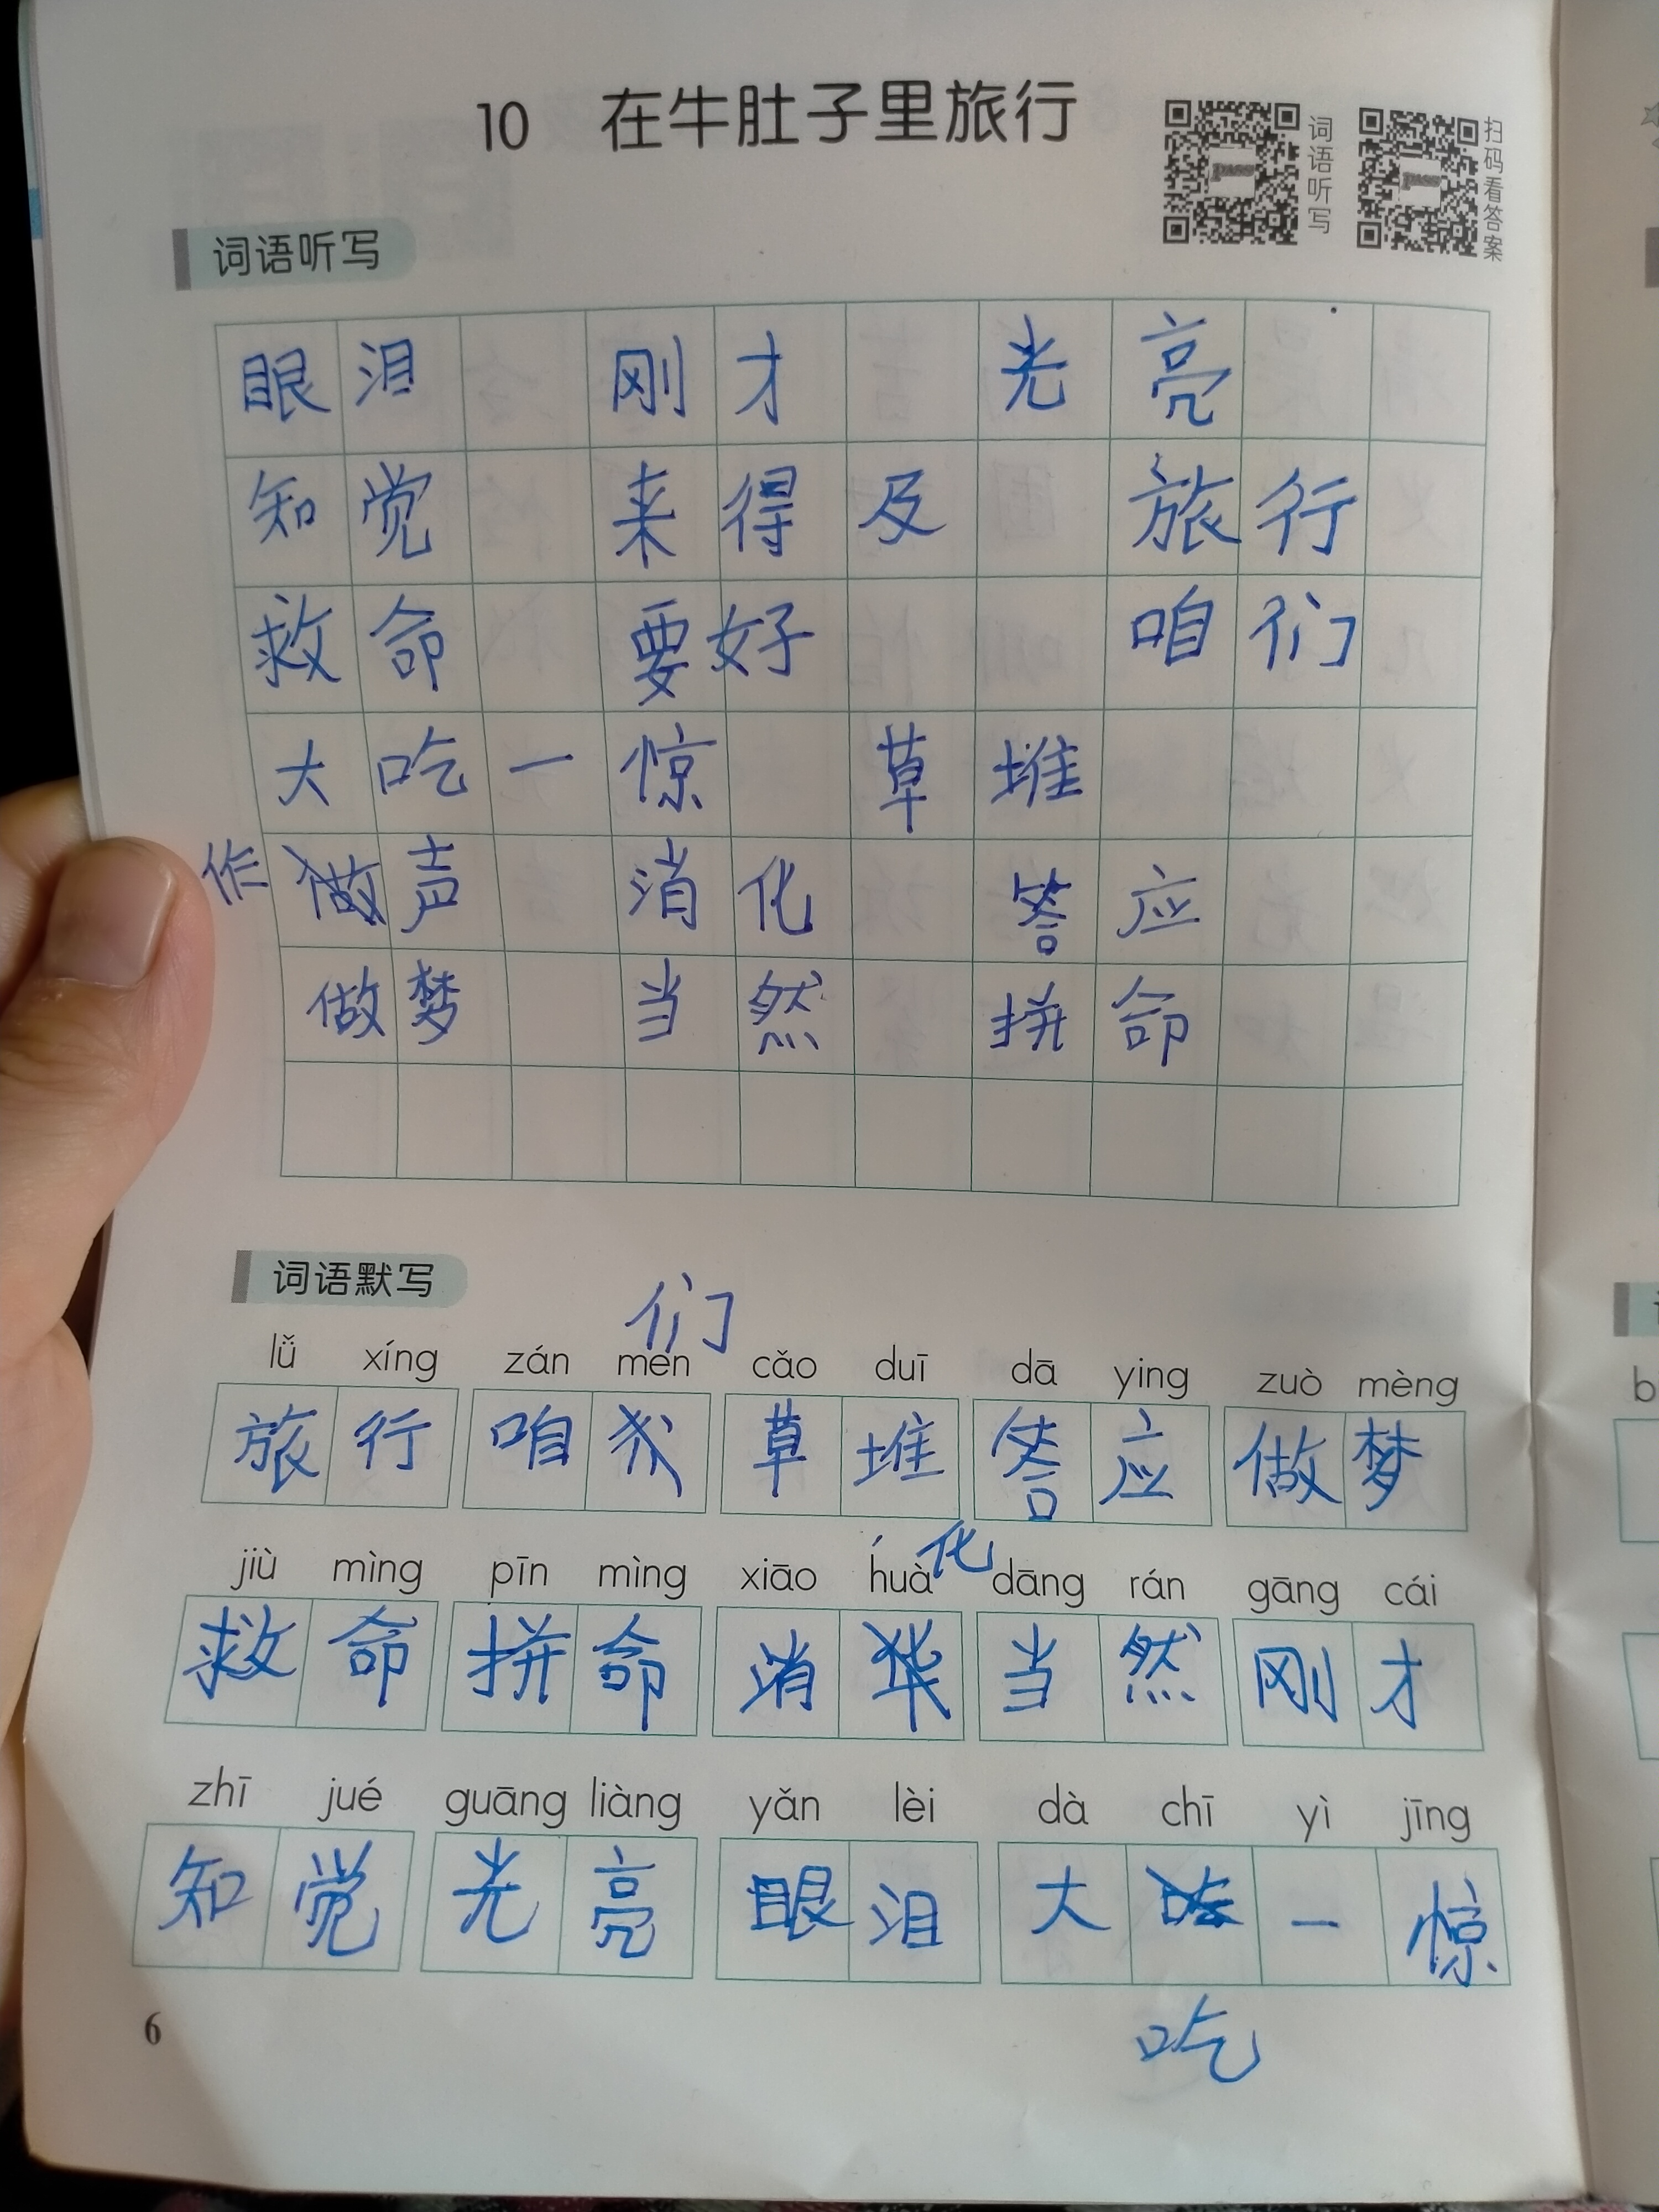 10 在牛肚子里旅行
词语听写
扫码看答案
词语听写
眼泪 刚才 光亮
知觉 来得及 旅行
救命 要好 咱们
大吃一惊 草堆
作 做声 消化 答应
做梦 当然 拼命
词语默写
们
lǚ xíng zán men cǎo duī dā ying zuò mèng
旅行 咱 草堆 答应 做梦
化
jiù mìng pīn mìng xiāo huà dāng rán gāng cái
救命 拼命 消 当然 刚才
zhī jué guāng liàng yǎn lèi dà chī yì jīng
知觉 光亮 眼泪 大 一惊
6
吃
b